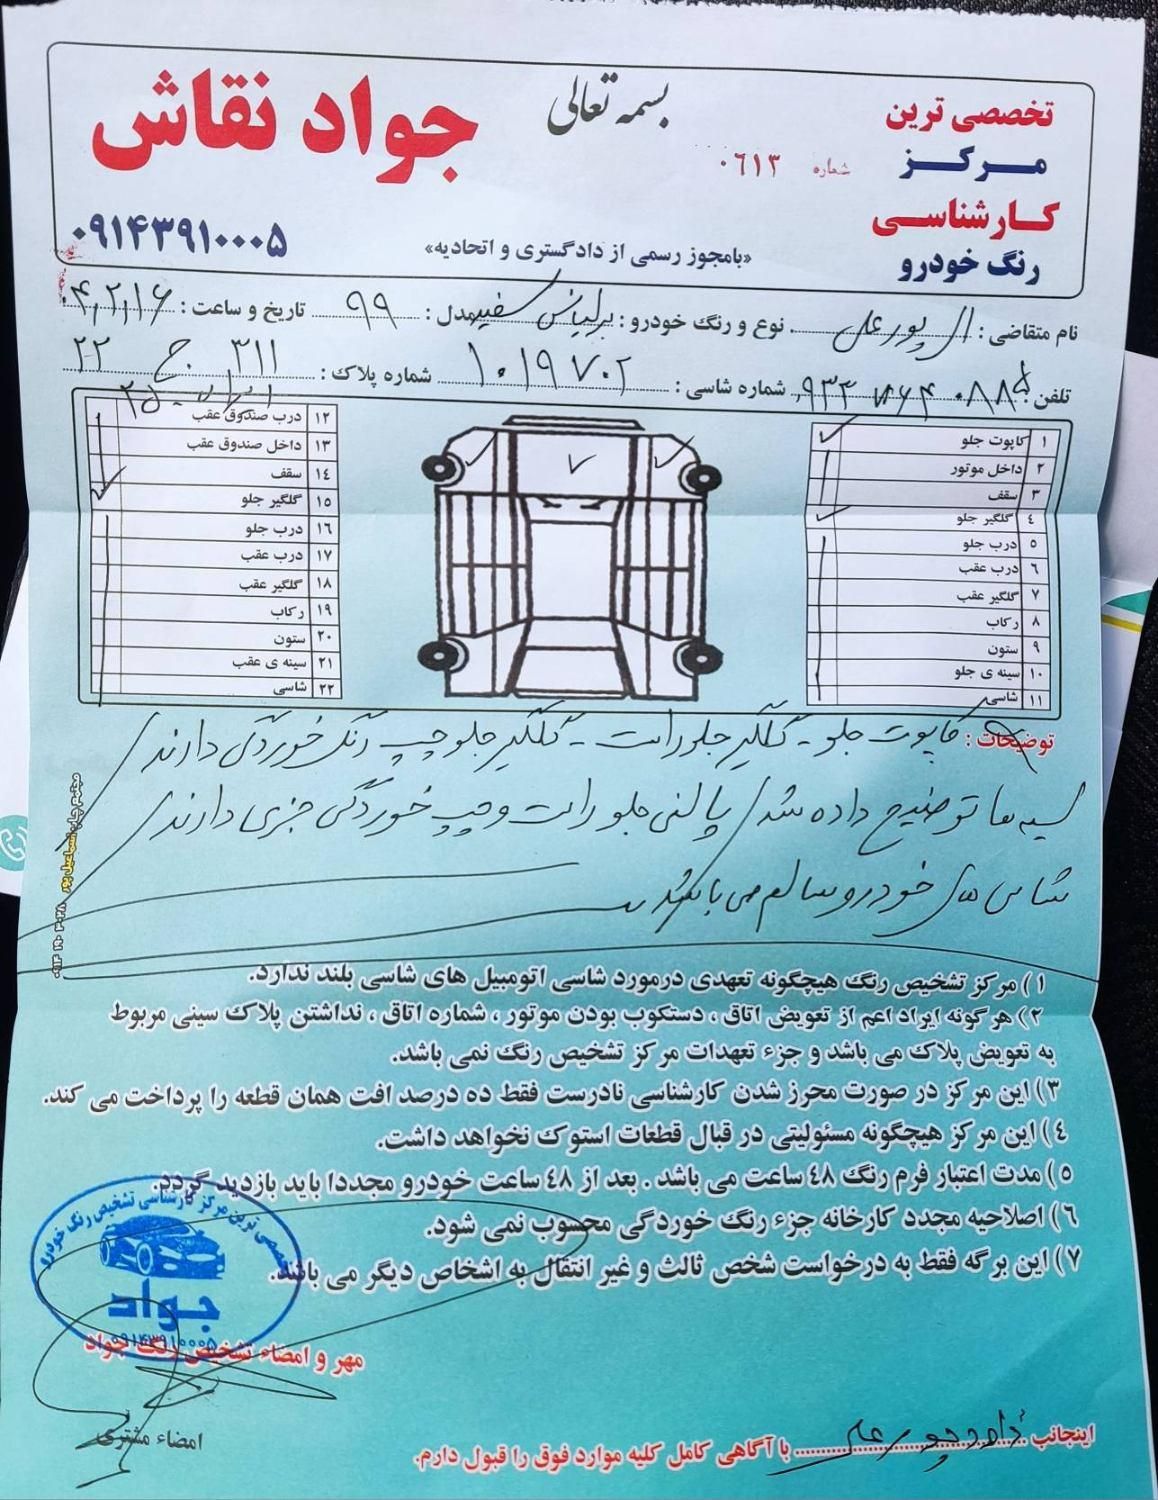 بسمه تعالی
تخصصی ترین
مرکز
کارشناسی
رنگ خودرو
شماره ۰۶۱۳
جواد نقاش
۰۹۱۴۳۹۱۰۰۰۵
«بامجوز رسمی از دادگستری و اتحادیه»
نام متقاضی : پورعلی نوع و رنگ خودرو : برلیانس سفید مدل : ۹۹ تاریخ و ساعت : ۰۴,۲,۱۶
تلفن : شماره شاسی : ۱۰۱۹۷۰۲ شماره پلاک : ۳۱۱ ج ۲۲
ایران - ۲۵
۱ کاپوت جلو
۲ داخل موتور
۳ سقف
۴ گلگیر جلو
۵ درب جلو
۶ درب عقب
۷ گلگیر عقب
۸ رکاب
۹ ستون
۱۰ سینه ی جلو
۱۱ شاسی
۱۲ درب صندوق عقب
۱۳ داخل صندوق عقب
۱۴ سقف
۱۵ گلگیر جلو
۱۶ درب جلو
۱۷ درب عقب
۱۸ گلگیر عقب
۱۹ رکاب
۲۰ ستون
۲۱ سینه ی عقب
۲۲ شاسی
توضیحات : کاپوت جلو - گلگیر جلو راست - گلگیر جلو چپ رنگ خوردگی دارند/
لیسه ها توضیح داده شد/ پالنی جلو راست و چپ خوردگی جزئی دارند/
شاسی های خودرو سالم می باشد
۱) مرکز تشخیص رنگ هیچگونه تعهدی درمورد شاسی اتومبیل های شاسی بلند ندارد.
۲) هرگونه ایراد اعم از تعویض اتاق ، دستکوب بودن موتور ، شماره اتاق ، نداشتن پلاک سینی مربوط
به تعویض پلاک می باشد و جزء تعهدات مرکز تشخیص رنگ نمی باشد.
۳) این مرکز در صورت محرز شدن کارشناسی نادرست فقط ده درصد افت همان قطعه را پرداخت می کند.
۴) این مرکز هیچگونه مسئولیتی در قبال قطعات استوک نخواهد داشت.
۵) مدت اعتبار فرم رنگ ۴۸ ساعت می باشد . بعد از ۴۸ ساعت خودرو مجددا باید بازدید گردد.
۶) اصلاحیه مجدد کارخانه جزء رنگ خوردگی محسوب نمی شود.
۷) این برگه فقط به درخواست شخص ثالث و غیر انتقال به اشخاص دیگر می باشد.
تخصصی ترین مرکز کارشناسی تشخیص رنگ خودرو
جواد
۰۹۱۴۳۹۱۰۰۰۵
مهر و امضاء تشخیص رنگ جواد
امضاء مشتری
اینجانب داود پورعلی با آگاهی کامل کلیه موارد فوق را قبول دارم.